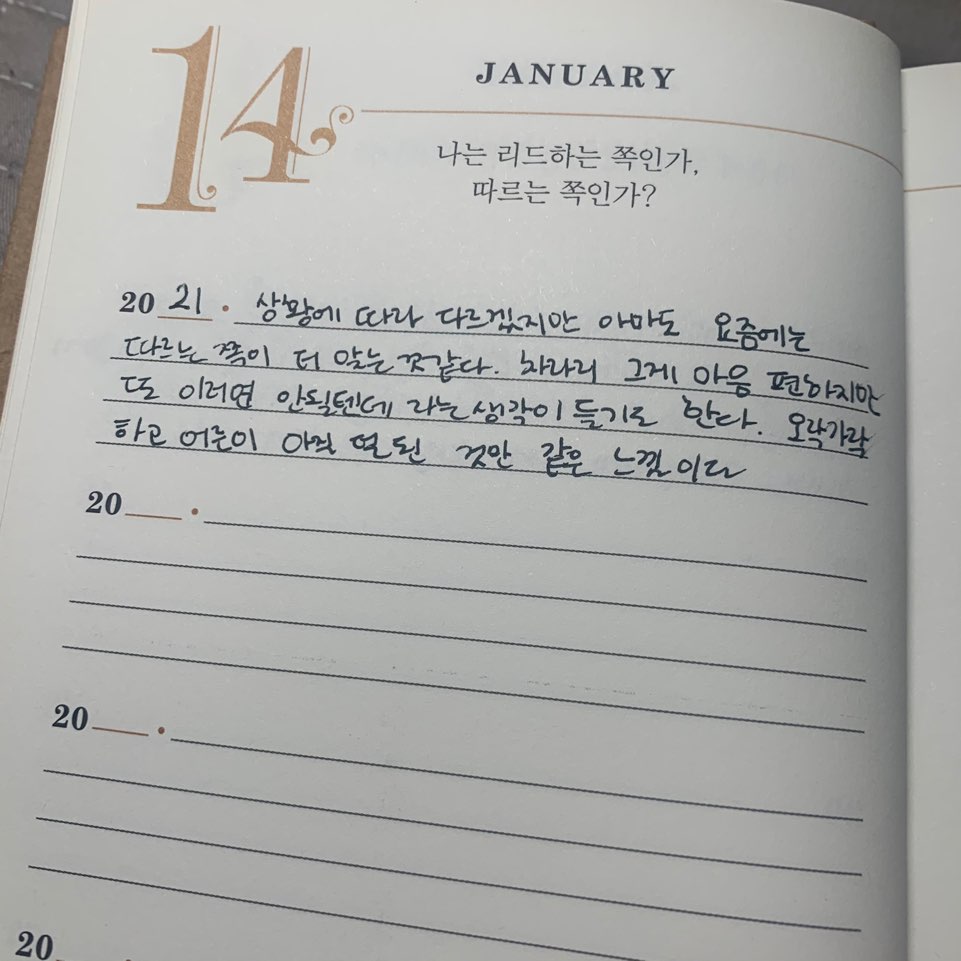 14
JANUARY
나는 리드하는 쪽인가,
따르는 쪽인가?
20 21 · 상황에 따라 다르겠지만 아마도 요즘에는
따르는 쪽이 더 맞는 것같다. 차라리 그게 마음 편하지만
또 이러면 안될텐데 라는 생각이 들기도 한다. 오락가락
하고 어른이 아직 덜 된 것만 같은 느낌이다
20 ·
20 ·
20